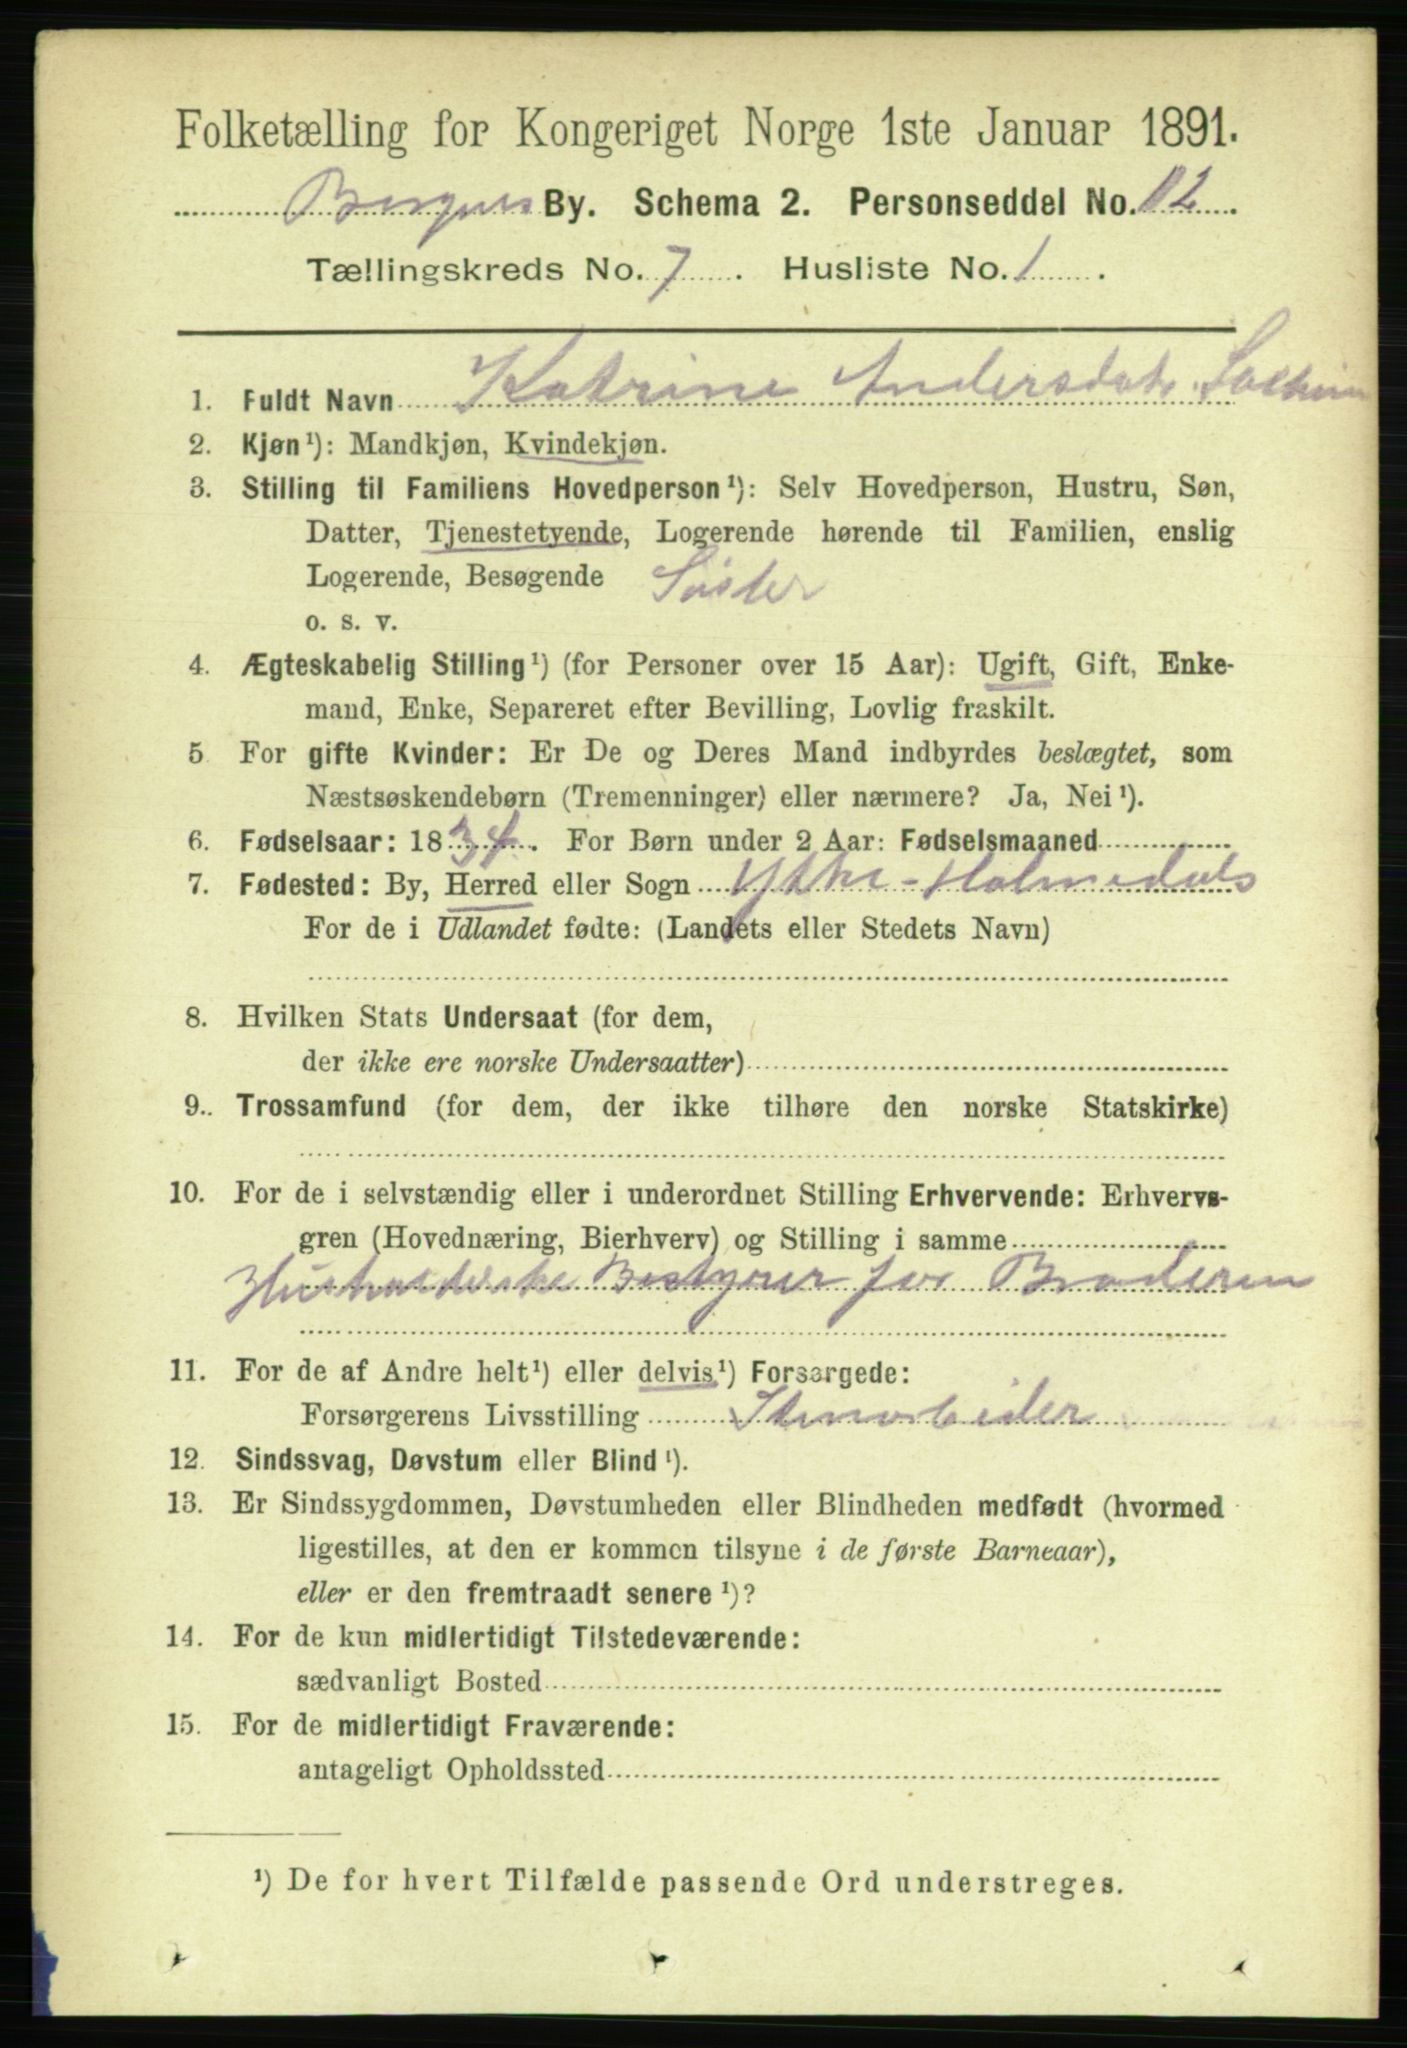 Folketælling for Kongeriget Norge 1ste Januar 1891.
Bergens By. Schema 2. Personseddel No. 12
Tællingskreds No. 7. Husliste No. 1.
1. Fuldt Navn Katrine Andersdatr.
2. Kjøn¹): Mandkjøn, Kvindekjøn.
3. Stilling til Familiens Hovedperson¹): Selv Hovedperson, Hustru, Søn,
Datter, Tjenestetyende, Logerende hørende til Familien, enslig
Logerende, Besøgende Søster
o. s. v.
4. Ægteskabelig Stilling¹) (for Personer over 15 Aar): Ugift, Gift, Enke-
mand, Enke, Separeret efter Bevilling, Lovlig fraskilt.
5 For gifte Kvinder: Er De og Deres Mand indbyrdes beslægtet, som
Næstsøskendebørn (Tremenninger) eller nærmere? Ja, Nei¹).
6. Fødselsaar: 1834. For Børn under 2 Aar: Fødselsmaaned
7. Fødested: By, Herred eller Sogn Yttre-Holmedals
For de i Udlandet fødte: (Landets eller Stedets Navn)
8. Hvilken Stats Undersaat (for dem,
der ikke ere norske Undersaatter)
9.. Trossamfund (for dem, der ikke tilhøre den norske Statskirke)
10. For de i selvstændig eller i underordnet Stilling Erhvervende: Erhvervs-
gren (Hovednæring, Bierhverv) og Stilling i samme
Husholderske Bestyrer for Broderen
11. For de af Andre helt¹) eller delvis¹) Forsørgede:
Forsørgerens Livsstilling Stenarbeider
12. Sindssvag, Døvstum eller Blind¹).
13. Er Sindssygdommen, Døvstumheden eller Blindheden medfødt (hvormed
ligestilles, at den er kommen tilsyne i de første Barneaar),
eller er den fremtraadt senere¹)?
14. For de kun midlertidigt Tilstedeværende:
sædvanligt Bosted
15. For de midlertidigt Fraværende:
antageligt Opholdssted
¹) De for hvert Tilfælde passende Ord understreges.